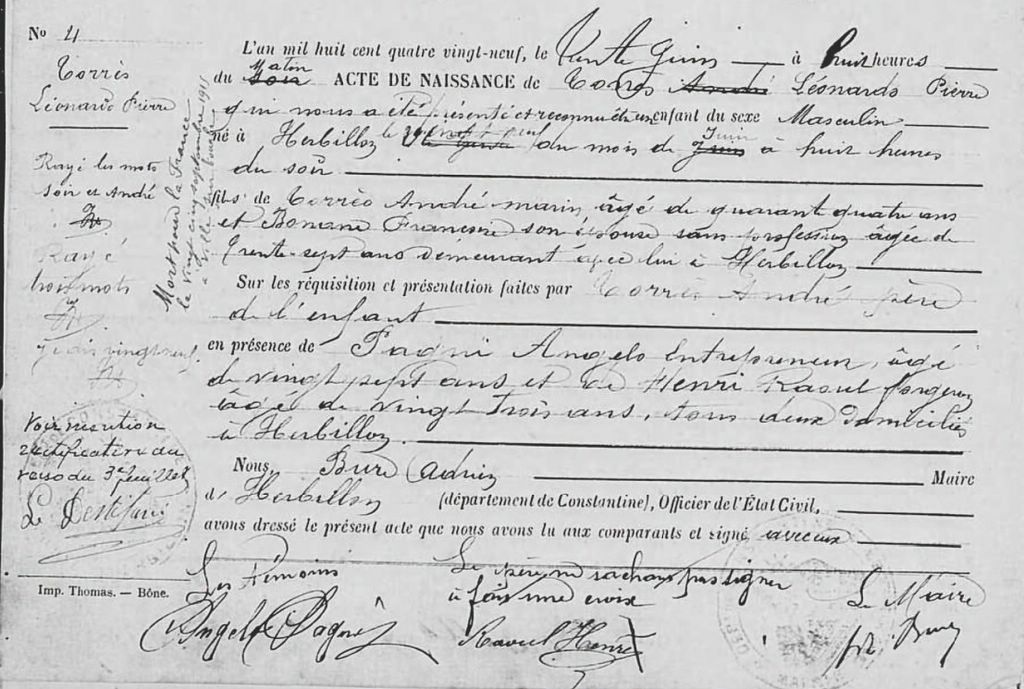 No 4
Torrès
Léonardo Pierre
Rayé les mots
soir et André
Rayé
trois mots
Mort pour la France
le vingt cinq septembre 1915
à Ville
Voir mention
rectificative au
verso du 3e feuillet
L'an mil huit cent quatre vingt-neuf, le Trente Juin à huit heures
du Matin soir ACTE DE NAISSANCE de Torrès André Léonardo Pierre
qui nous a été présenté et reconnu être enfant du sexe Masculin
né à Herbillon le vingt neuf du mois de Juin à huit heures
du soir
fils de Torrès André marin, âgé de quarante quatre ans
et Bonano Françoise son épouse sans profession âgée de
trente sept ans demeurant avec lui à Herbillon
Sur les réquisition et présentation faites par Torrès André père
de l'enfant
en présence de Pagni Angelo Entrepreneur, âgé
de vingt sept ans et de Henri Raoul forgeron
âgé de vingt trois ans, tous deux domiciliés
à Herbillon.
Nous, Bure Maire
d' Herbillon (département de Constantine), Officier de l'État Civil,
avons dressé le présent acte que nous avons lu aux comparants et signé avec eux
Les témoins
Le père ne sachant pas signer
à fait une croix
Le Maire
Angelo Pagni
Raoul Henri
Bure
Imp. Thomas. — Bône.